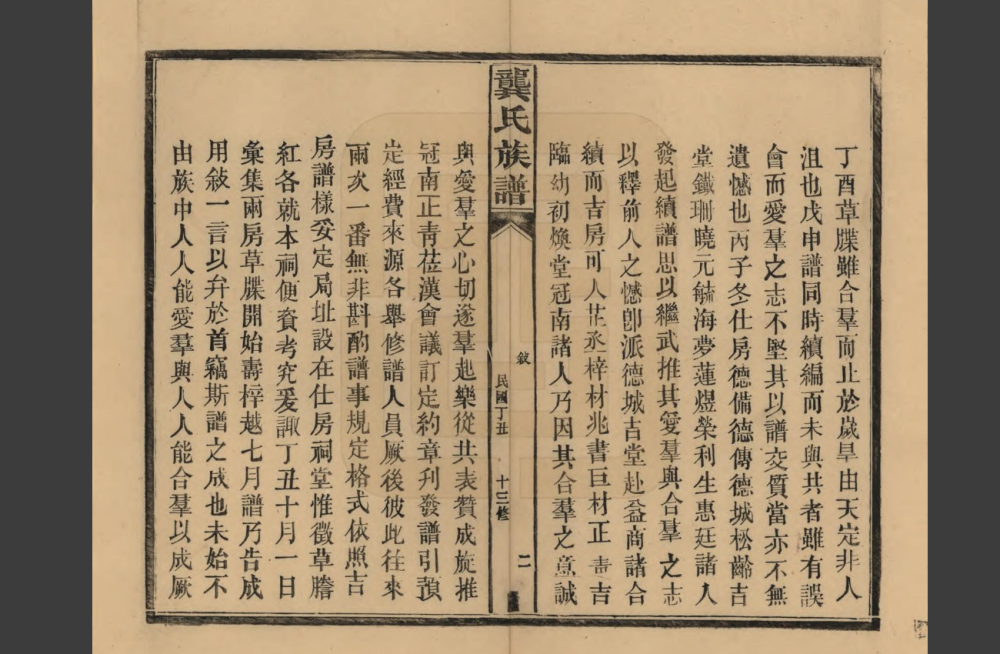 丁酉草牒雖合羣而止於歲旱由天定非人
沮也戊申譜同時續編而未與共者雖有誤
會而愛羣之志不堅其以譜交質當亦不無
遺憾也丙子冬仕房德備德傳德城松齡吉
堂鐵珊曉元毓海夢蓮煜榮利生惠廷諸人
發起續譜思以繼武推其愛羣與合羣之志
以釋前人之憾卽派德城吉堂赴益商諸合
續而吉房可人芷丞梓材兆書巨材正靑吉
臨幼初煥堂冠南諸人乃因其合羣之意誠
龔氏族譜
敘
民國丁丑
十三修
二
與愛羣之心切遂羣起樂從共表贊成旋推
冠南正靑莅漢會議訂定約章刋發譜引預
定經費來源各舉修譜人員厥後彼此往來
兩次一番無非斟酌譜事規定格式依照吉
房譜樣妥定局址設在仕房祠堂惟徵草謄
紅各就本祠便資考究爰諏丁丑十月一日
彙集兩房草牒開始壽梓越七月譜乃告成
用敍一言以弁於首竊斯譜之成也未始不
由族中人人能愛羣與人人能合羣以成厥